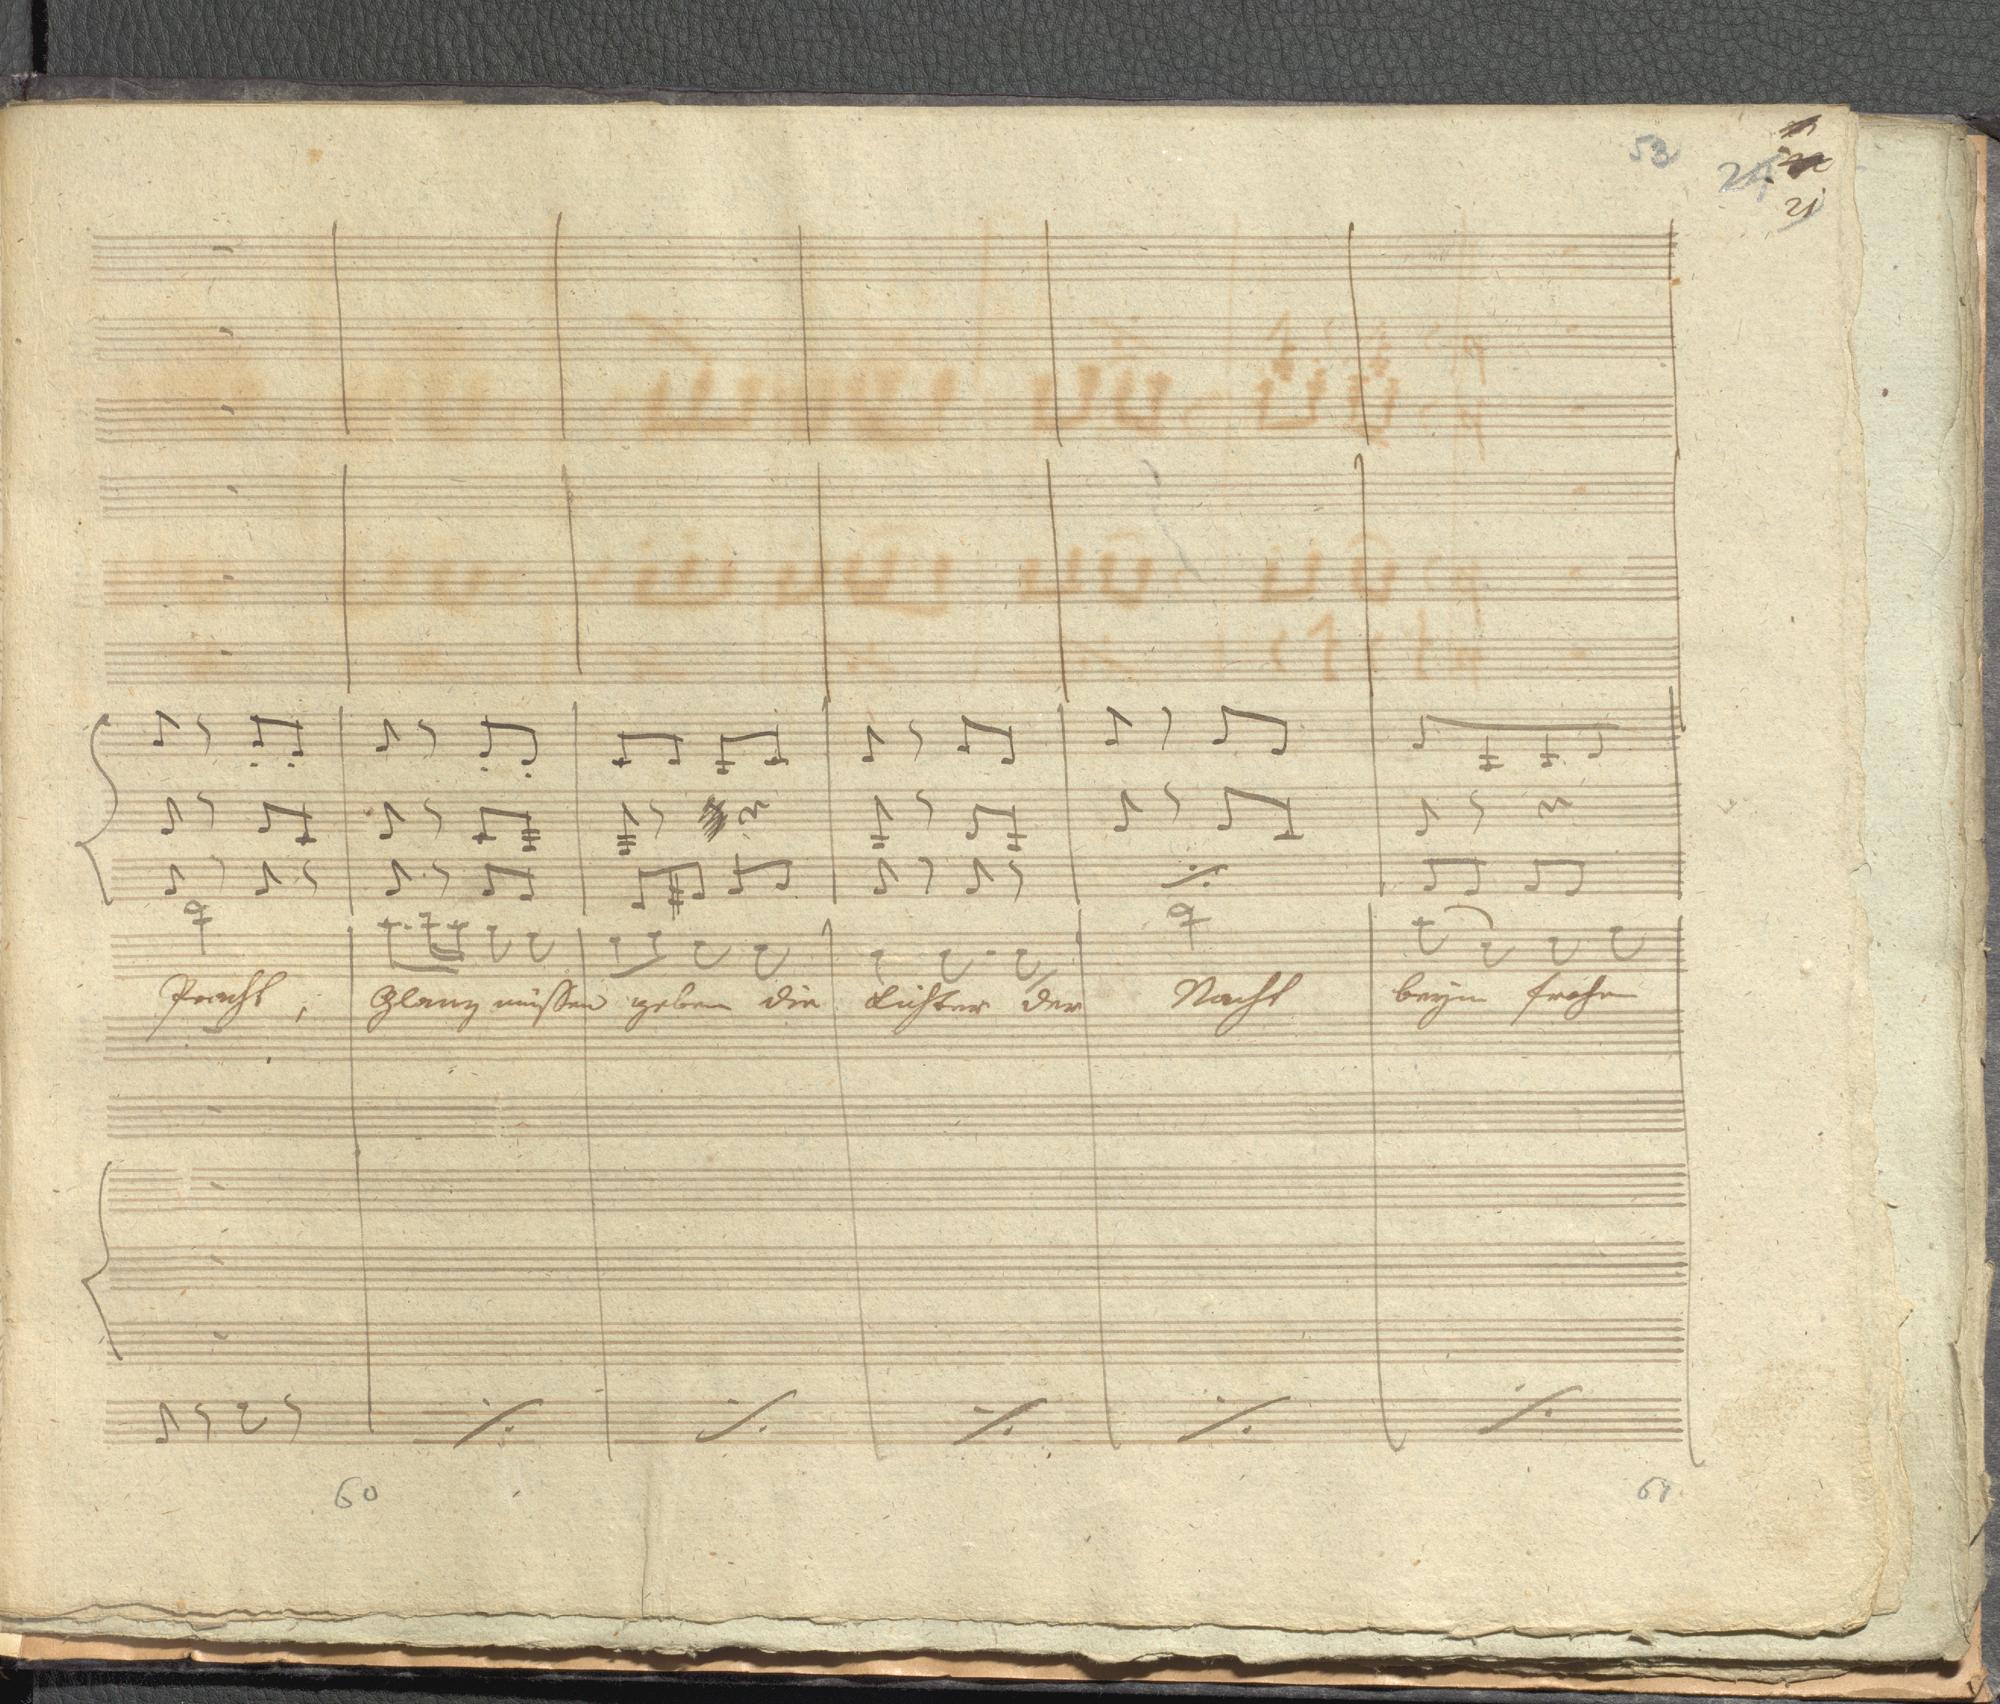 53
24
21
Pracht, Glanz müssen geben die Lichter der Nacht beym frohen
60
61